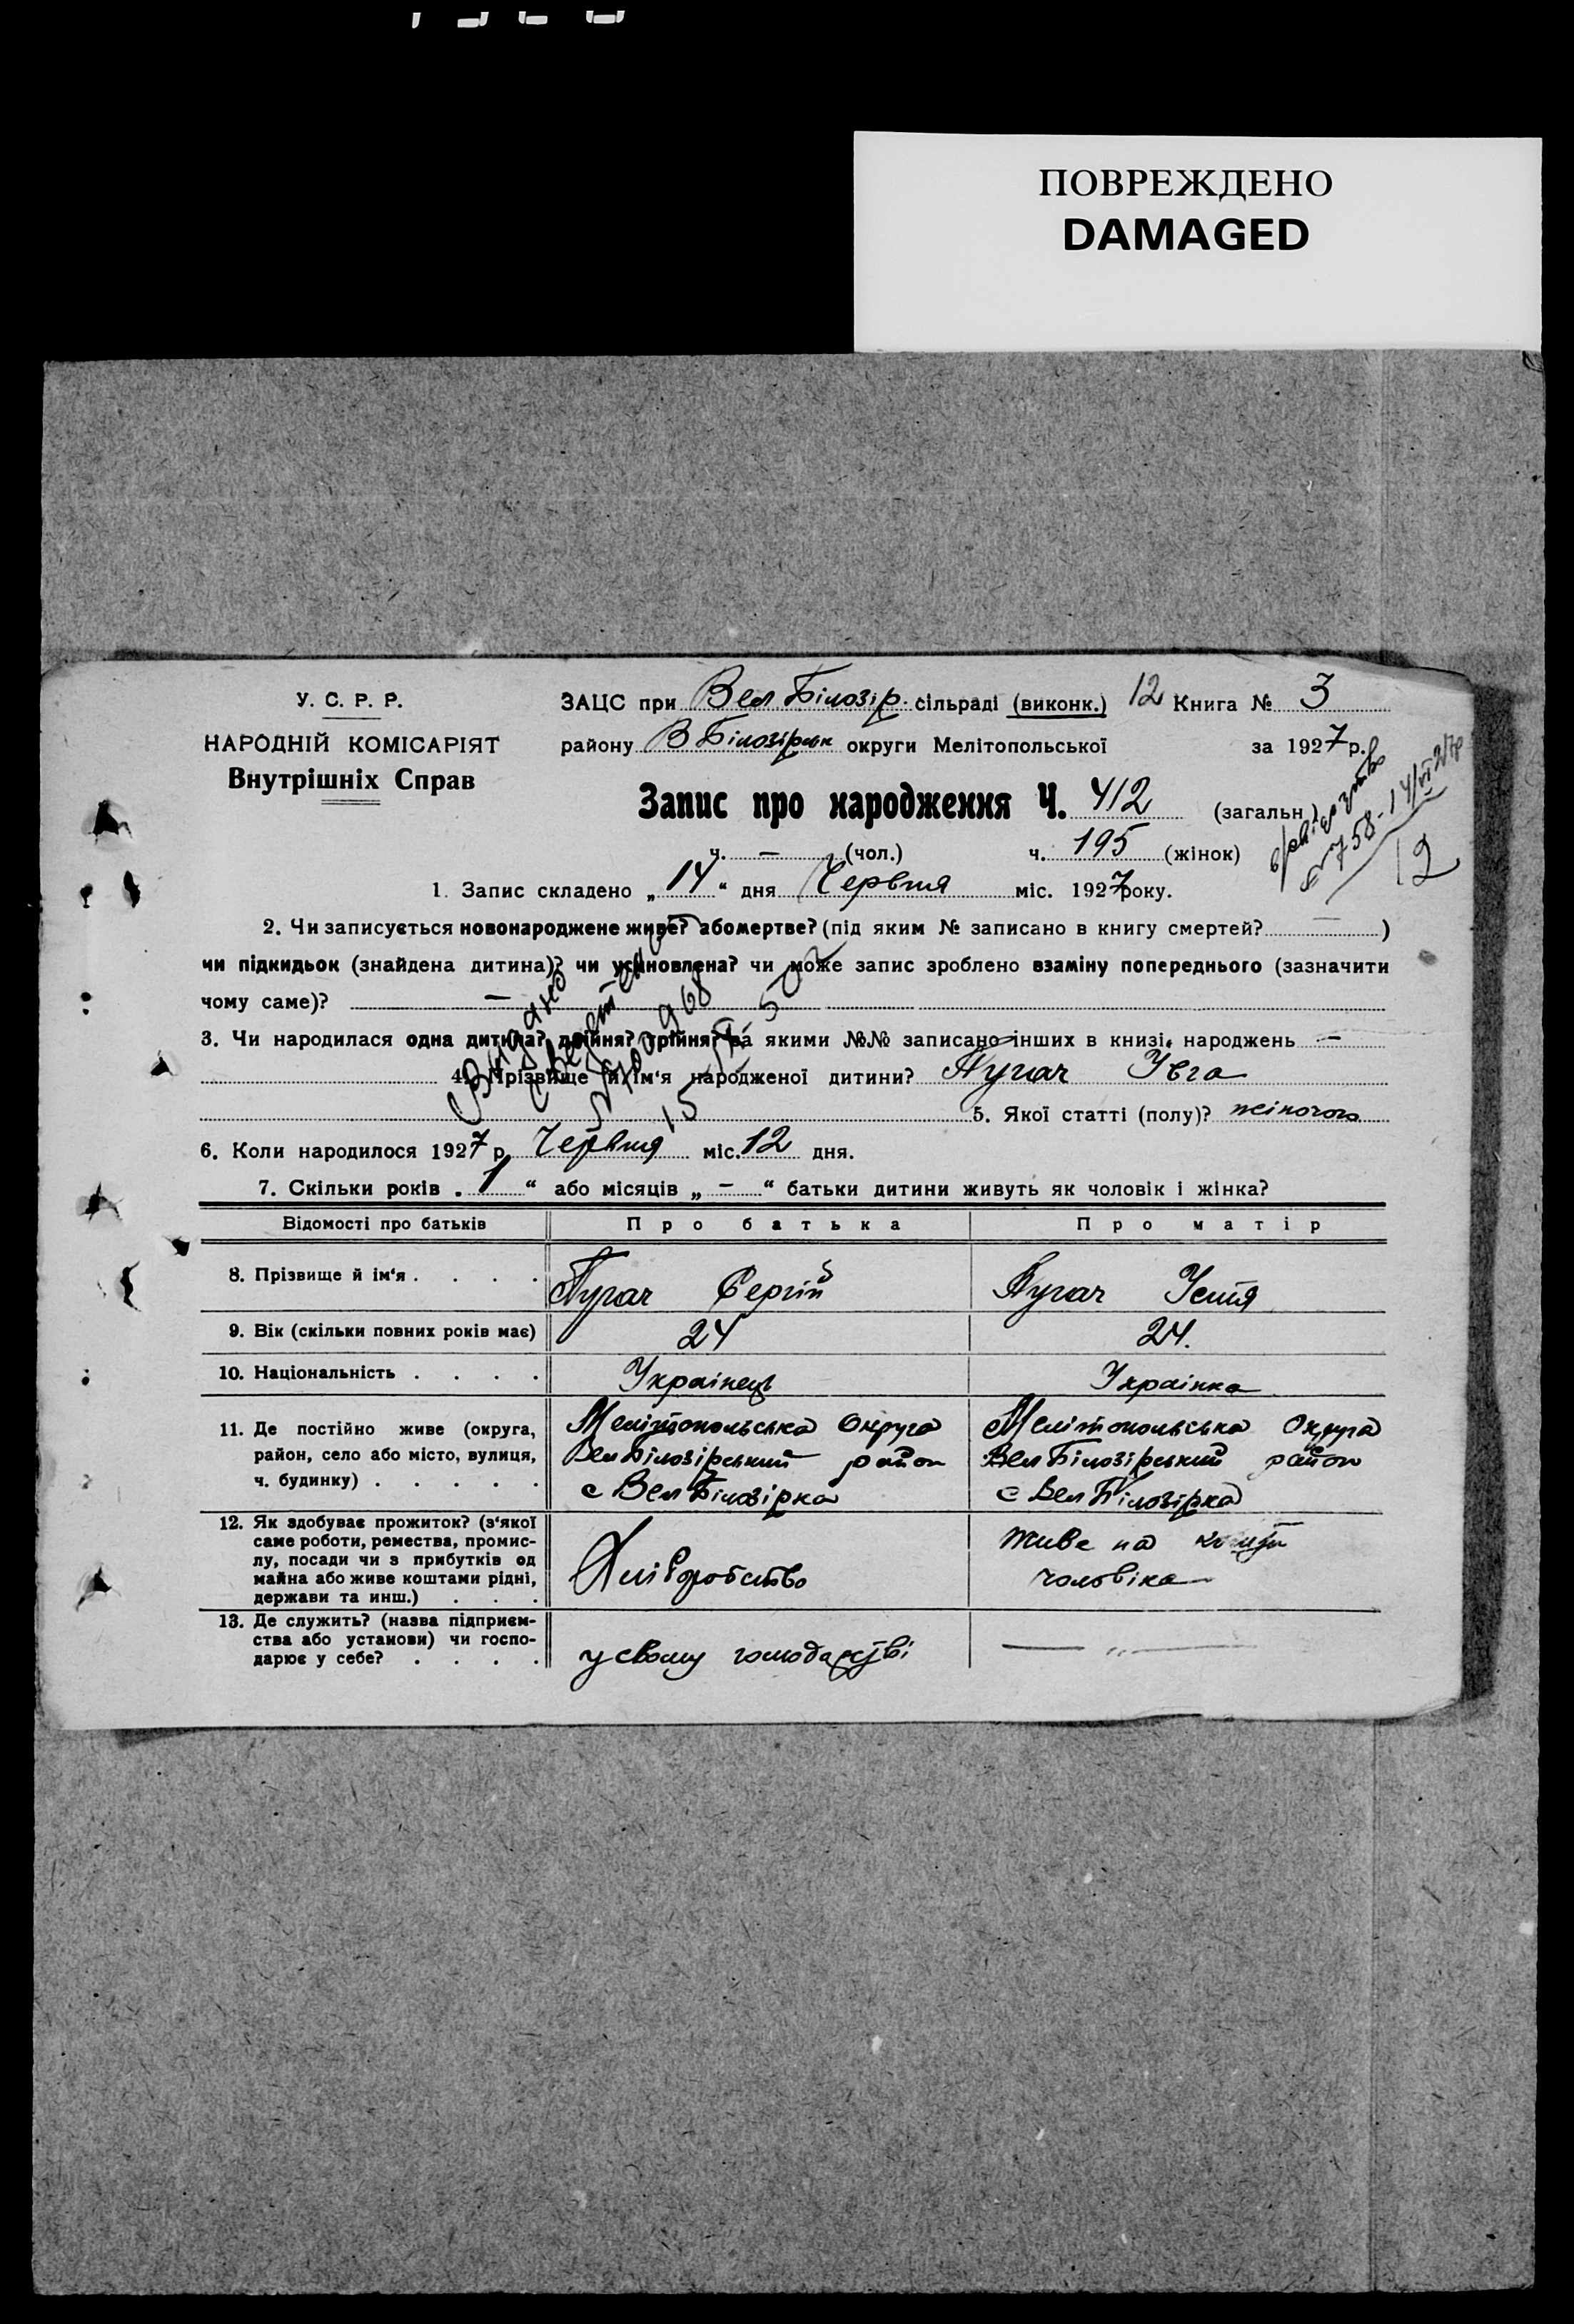 ПОВРЕЖДЕНО
DAMAGED
У. С. Р. Р.
НАРОДНІЙ КОМІСАРІЯТ
Внутрішніх Справ
ЗАЦС при Вел Білозір. сільраді (виконк.) 12 Книга № 3
району В Білозірськ округи Мелітопольської за 1927 р.
Запис про народження Ч. 412 (загальн.)
ч. — (чол.) ч. 195 (жінок)
№ 758 - 14/VI 27р
12
1. Запис складено „ 14 “ дня Червня міс. 1927 року.
2. Чи записується новонароджене живе? або мертве? (під яким № записано в книгу смертей? — )
чи підкидьок (знайдена дитина)? чи усиновлена? чи може запис зроблено взаміну попереднього (зазначити
чому саме)? —
3. Чи народилася одна дитина? двійня? трійня? за якими №№ записано інших в книзі народжень —
4. Прізвище й ім‘я народженої дитини? Пугач Ївга
5. Якої статті (полу)? жіночого
6. Коли народилося 1927 р. Червня міс. 12 дня.
7. Скільки років „ 1 “ або місяців „ — “ батьки дитини живуть як чоловік і жінка?
Відомості про батьків Про батька Про матір
8. Прізвище й ім‘я . . . . Пугач Сергій Пугач Устя
9. Вік (скільки повних років має) 24 24.
10. Національність . . . . Українець Українка
11. Де постійно живе (округа, район, село або місто, вулиця, ч. будинку) . . . . .
Мелітопольська Округа
Вел Білозірський район
с Вел Білозірка
Мелітопольська Округа
Вел Білозірський район
с Вел Білозірка
12. Як здобуває прожиток? (з‘якої
саме роботи, ремества, промис-
лу, посади чи з прибутків од
майна або живе коштами рідні,
держави та инш.) . . .
Хліборобство
Живе на кошти
чоловіка
13. Де служить? (назва підприєм-
ства або установи) чи госпо-
дарює у себе? . . . .
у свому господарстві
— „ —